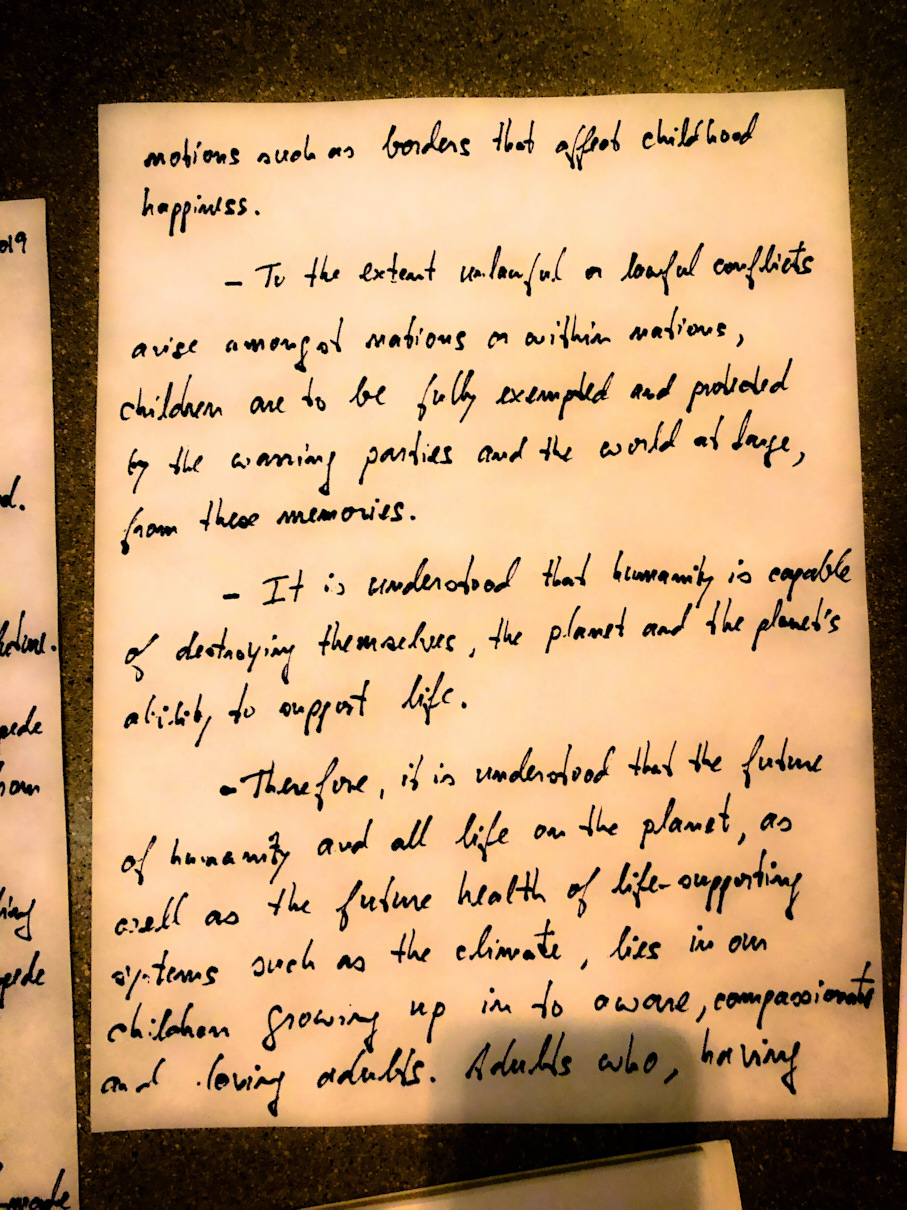 notions such as borders that affect childhood
happiness.
- To the extent unlawful or lawful conflicts
arise amongst nations or within nations,
children are to be fully exempted and protected
by the warring parties and the world at large,
from these memories.
- It is understood that humanity is capable
of destroying themselves, the planet and the planet's
ability to support life.
- Therefore, it is understood that the future
of humanity and all life on the planet, as
well as the future health of life-supporting
systems such as the climate, lies in our
children growing up in to aware, compassionate
and loving adults. Adults who, having